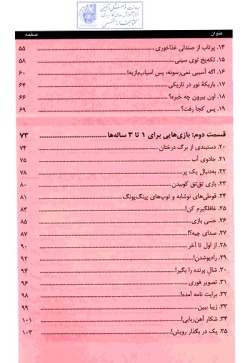 عنوان صفحه
۱۴. پرتاب از صندلی غذاخوری ۵۵
۱۵. تکه‌یخ توی سینی ۵۸
۱۶. اگه آسیبی نمی‌رسونه، پس اسباب‌بازیه! ۶۰
۱۷. باریکۀ نور در تاریکی ۶۴
۱۸. اون بیرون چه خبره؟ ۶۷
۱۹. پس کجا رفت؟ ۶۹
قسمت دوم: بازی‌هایی برای ۱ تا ۳ ساله‌ها ۷۳
۲۰. دستبندی از برگ درختان ۷۴
۲۱. جادوی آب ۷۵
۲۲. به‌دنبال یک پر ۷۸
۲۳. بازی تق‌تق کوبیدن ۸۰
۲۴. قوطی‌های نوشابه و توپ‌های پینگ‌پونگ ۸۱
۲۵. غافلگیرم کن! ۸۳
۲۶. حسی بازی ۸۵
۲۷. صدای چیه؟!
۲۸. از اول تا آخر ۹۰
۲۹. رادیوشدن!
۳۰. شال پرنده را بگیر! ۹۴
۳۱. تصویر فوری ۹۶
۳۲. برایت نامه آمده! ۹۸
۳۳. زیبا ببین ۹۹
۳۴. شکار آهن‌ربایی! ۱۰۱
۳۵. یک در بگذار رویش! ۱۰۳